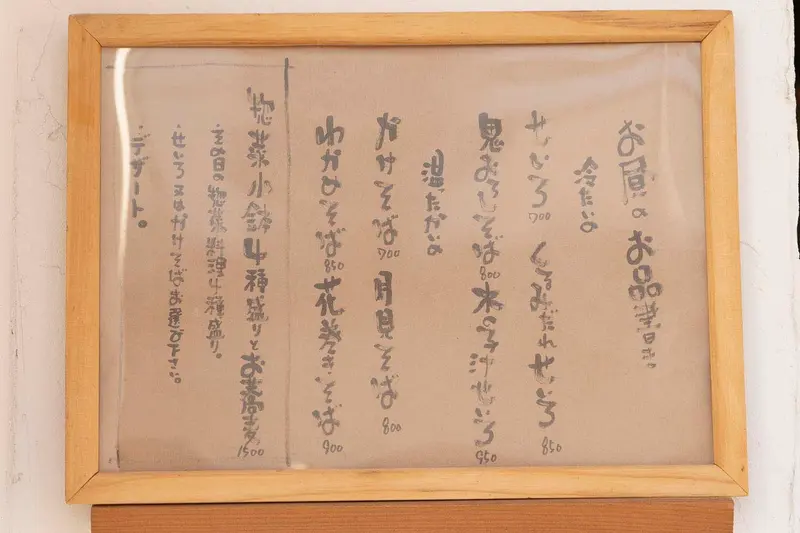 お昼のお品書き。
冷たいの
せいろ 700 くるみだれせいろ 850
鬼おろしそば 800 木の子汁せいろ 950
温たかいの
かけそば 700 月見そば 800
わかめそば 850 花巻きそば 900
惣菜小鉢4種盛りとお蕎麦 1500
・その日の惣菜料理4種盛り。
・せいろ又はかけそばお選び下さい。
・デザート。